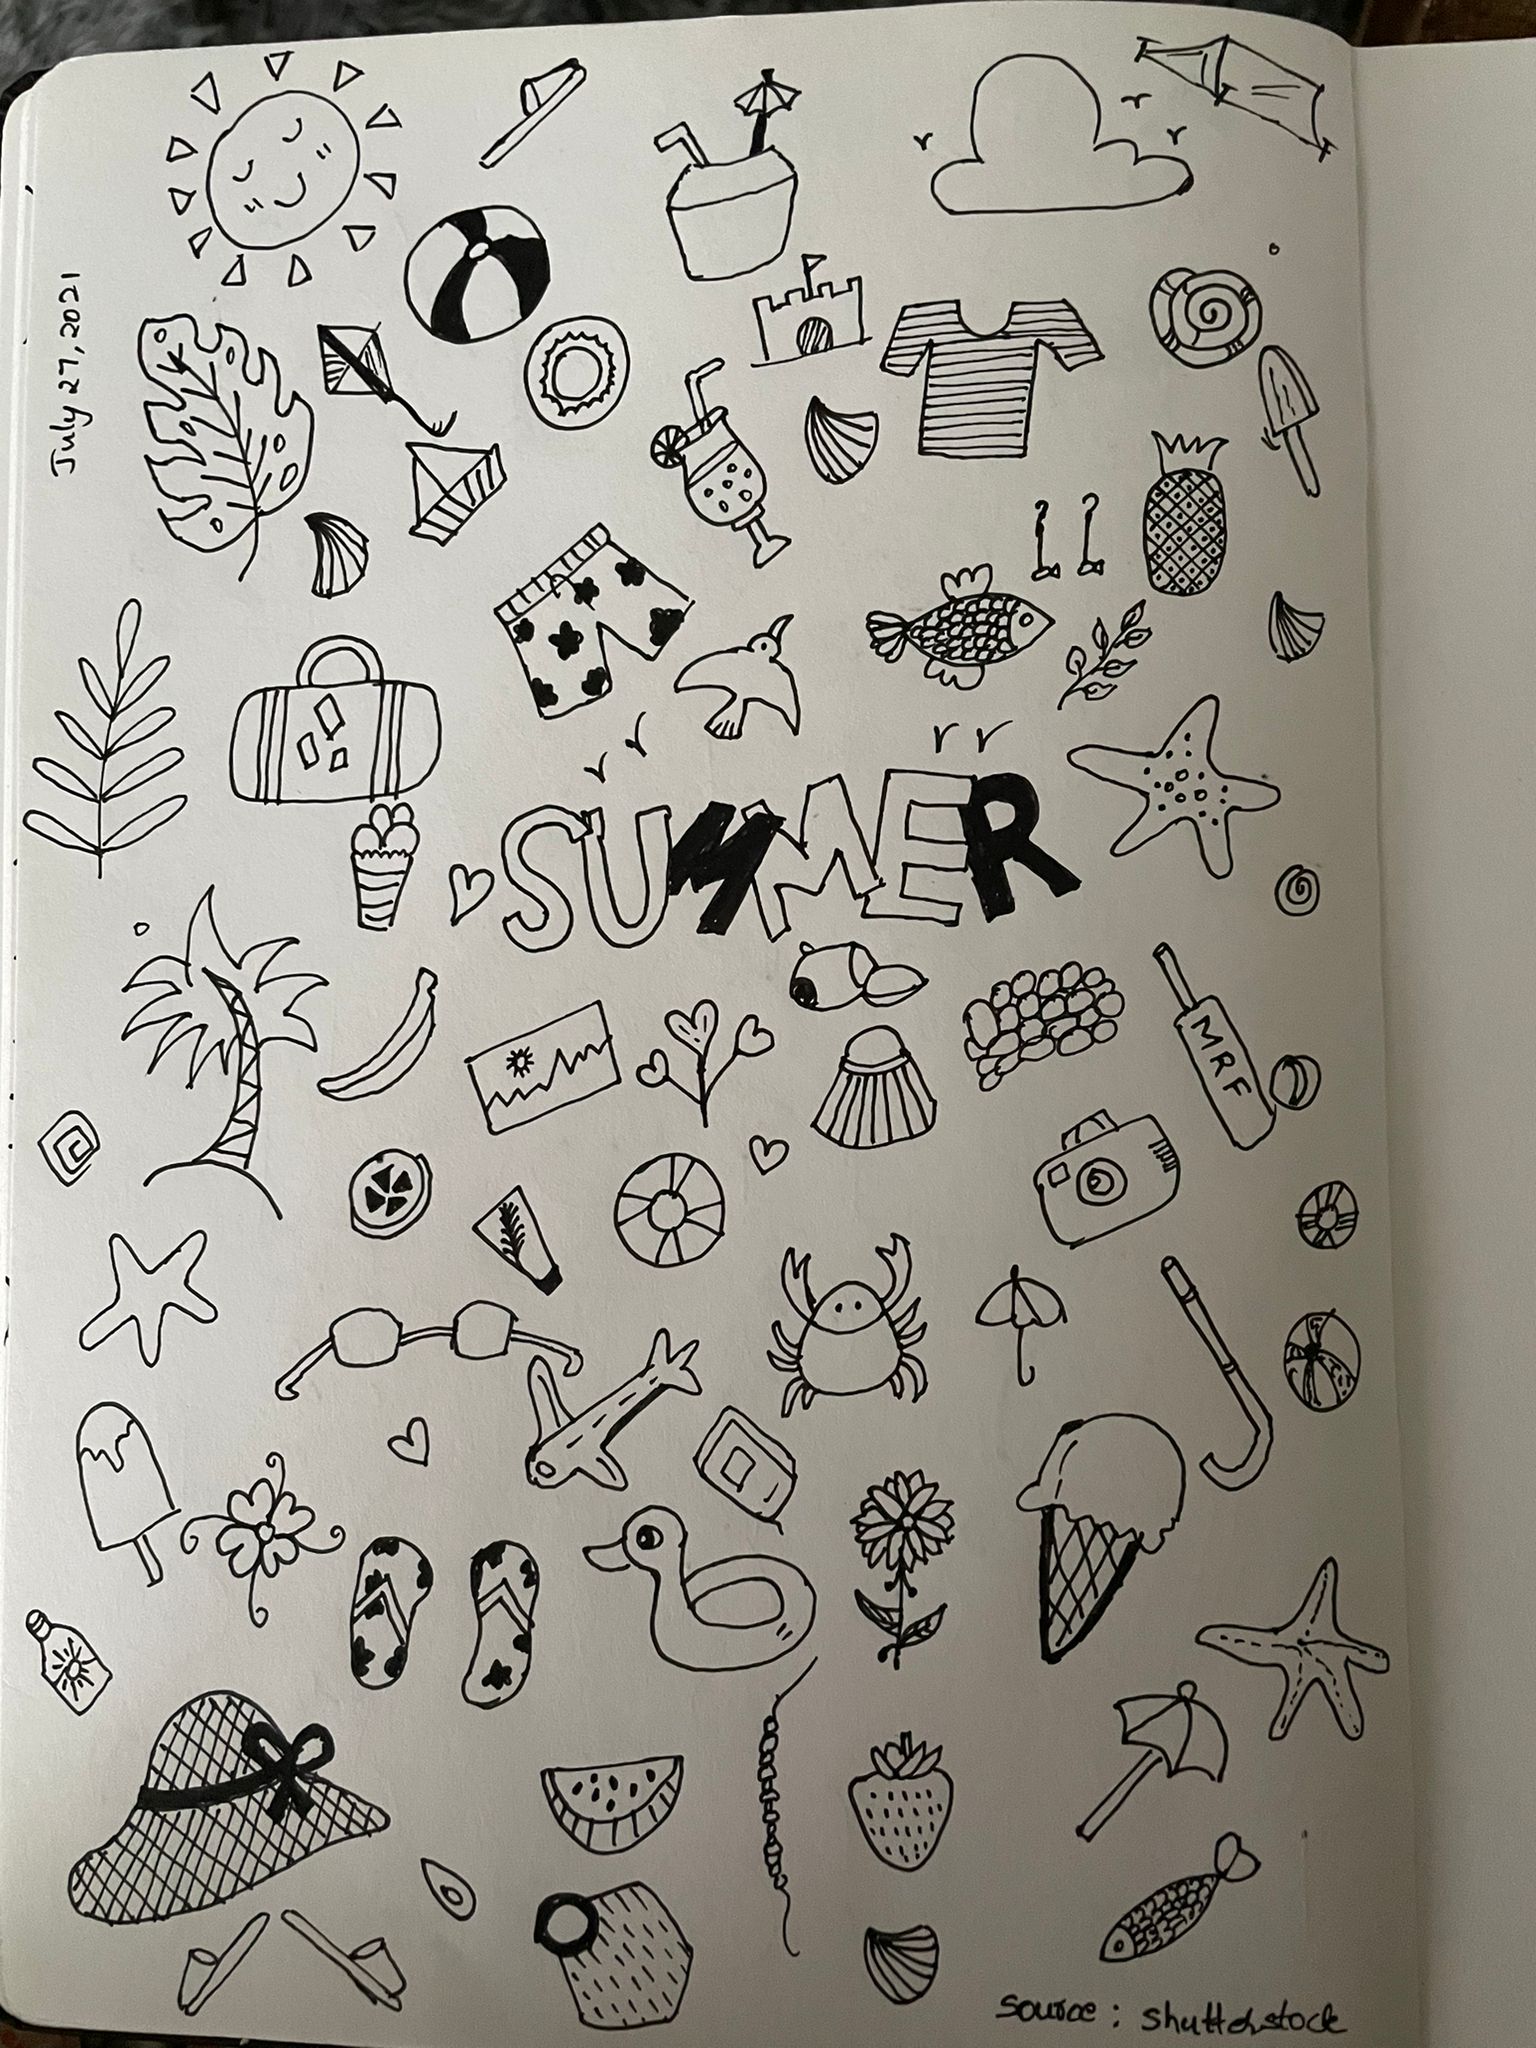 July 27, 2021
SUMMER
MRF
source: shutterstock